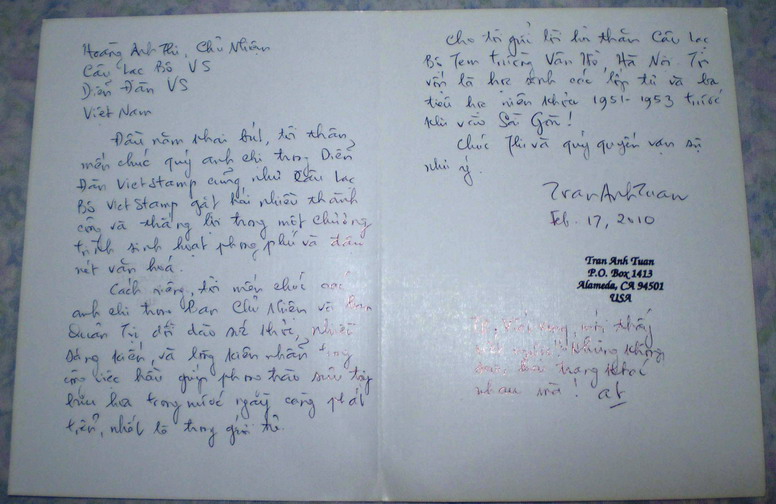 Hoàng Anh Thi, Chủ Nhiệm
Câu Lạc Bộ VS
Diễn Đàn VS
Việt Nam
Đầu năm khai bút, tôi thân
mến chúc quý anh chị trong Diễn
Đàn VietStamp cũng như Câu Lạc
Bộ VietStamp gặt hái nhiều thành
công và thắng lợi trong một chương
trình sinh hoạt phong phú và đậm
nét văn hoá.
Cách riêng, tôi mến chúc các
anh chị trong Ban Chủ Nhiệm và Ban
Quản Trị dồi dào sức khỏe, nhiều
sáng kiến, và lòng kiên nhẫn trong
công việc hầu giúp phong trào sưu tập
bưu hoa trong nước ngày càng phát
triển, nhất là trong giới trẻ.
Cho tôi gửi lời hỏi thăm Câu Lạc
Bộ Tem trường Vân Hồ, Hà Nội. Tôi
vốn là học sinh các lớp tư và ba
tiểu học niên khóa 1951-1953 trước
khi vào Sài Gòn!
Chúc Thi và quý quyến vạn sự
như ý.
TranAnhTuan
Feb. 17, 2010
Tran Anh Tuan
P.O. Box 1413
Alameda, CA 94501
USA
viết thấy
Nhưng không
trang khác
nhau mà! at